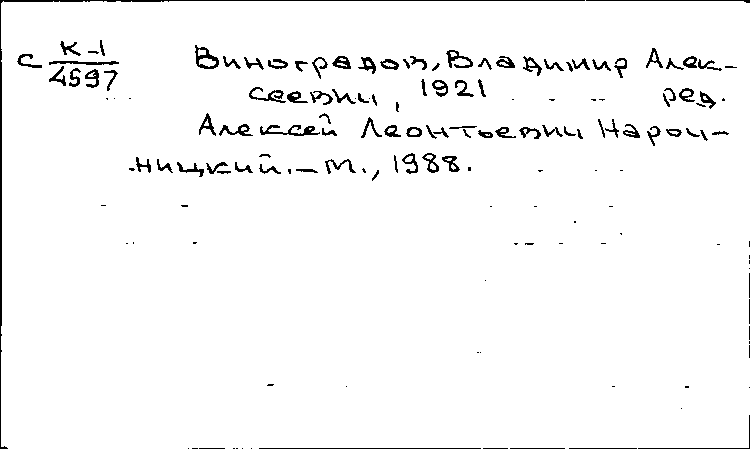 с К-1
4597
Виноградов, Владимир Алек-
сеевич, 1921 ред.
Алексей Леонтьевич Нароч-
ницкий. – М., 1988.